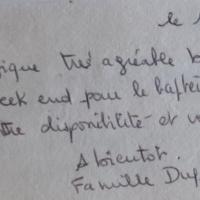 le
très agréable
eek end pour le baptê
tre disponibilité et v
A bientot.
Famille Dup